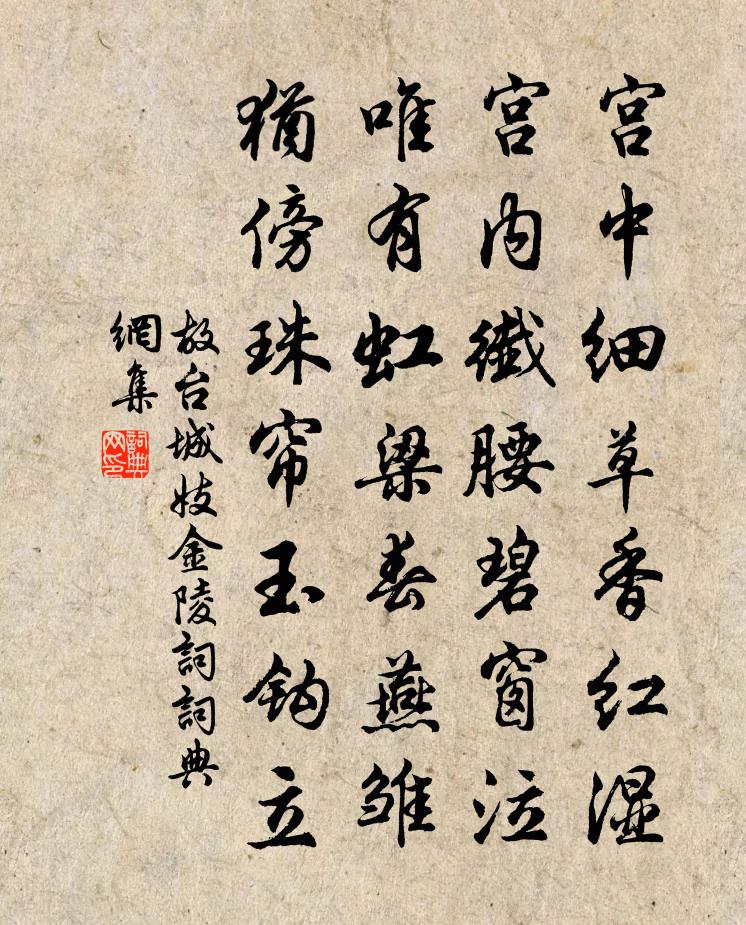 宫中细草香红湿
宫内纖腰碧窗泣
唯有虹梁春燕雏
猶傍珠帘玉钩立
故台城妓金陵詞詞典
網集
詞典
网印